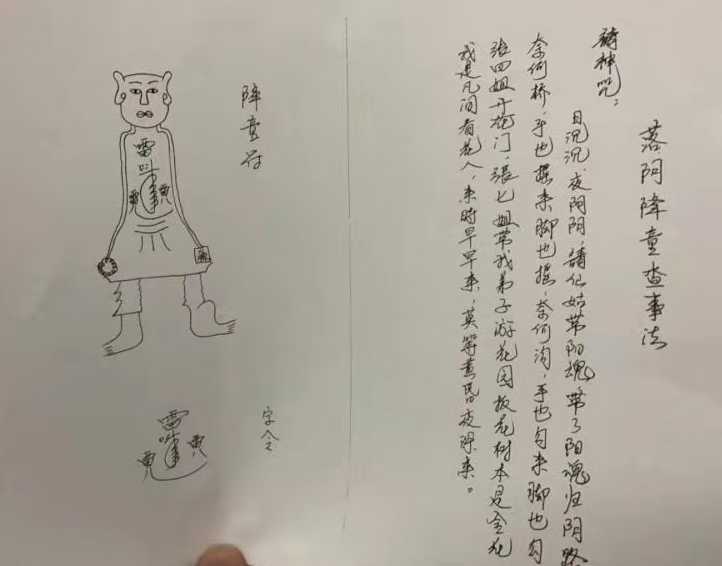 落阴降童查事法
请神咒：
日沉沉，夜阴阴，请仙姑带阳魂，带了阳魂归阴路
奈何桥，手也摇来脚也摇，奈何沟，手也勾来脚也勾
张四姐开花门，张七姐带我弟子游花园板花树本是金花
我是凡间看花人，来时早早来，莫等黄昏夜降来。
降童符
雷
字令
雷